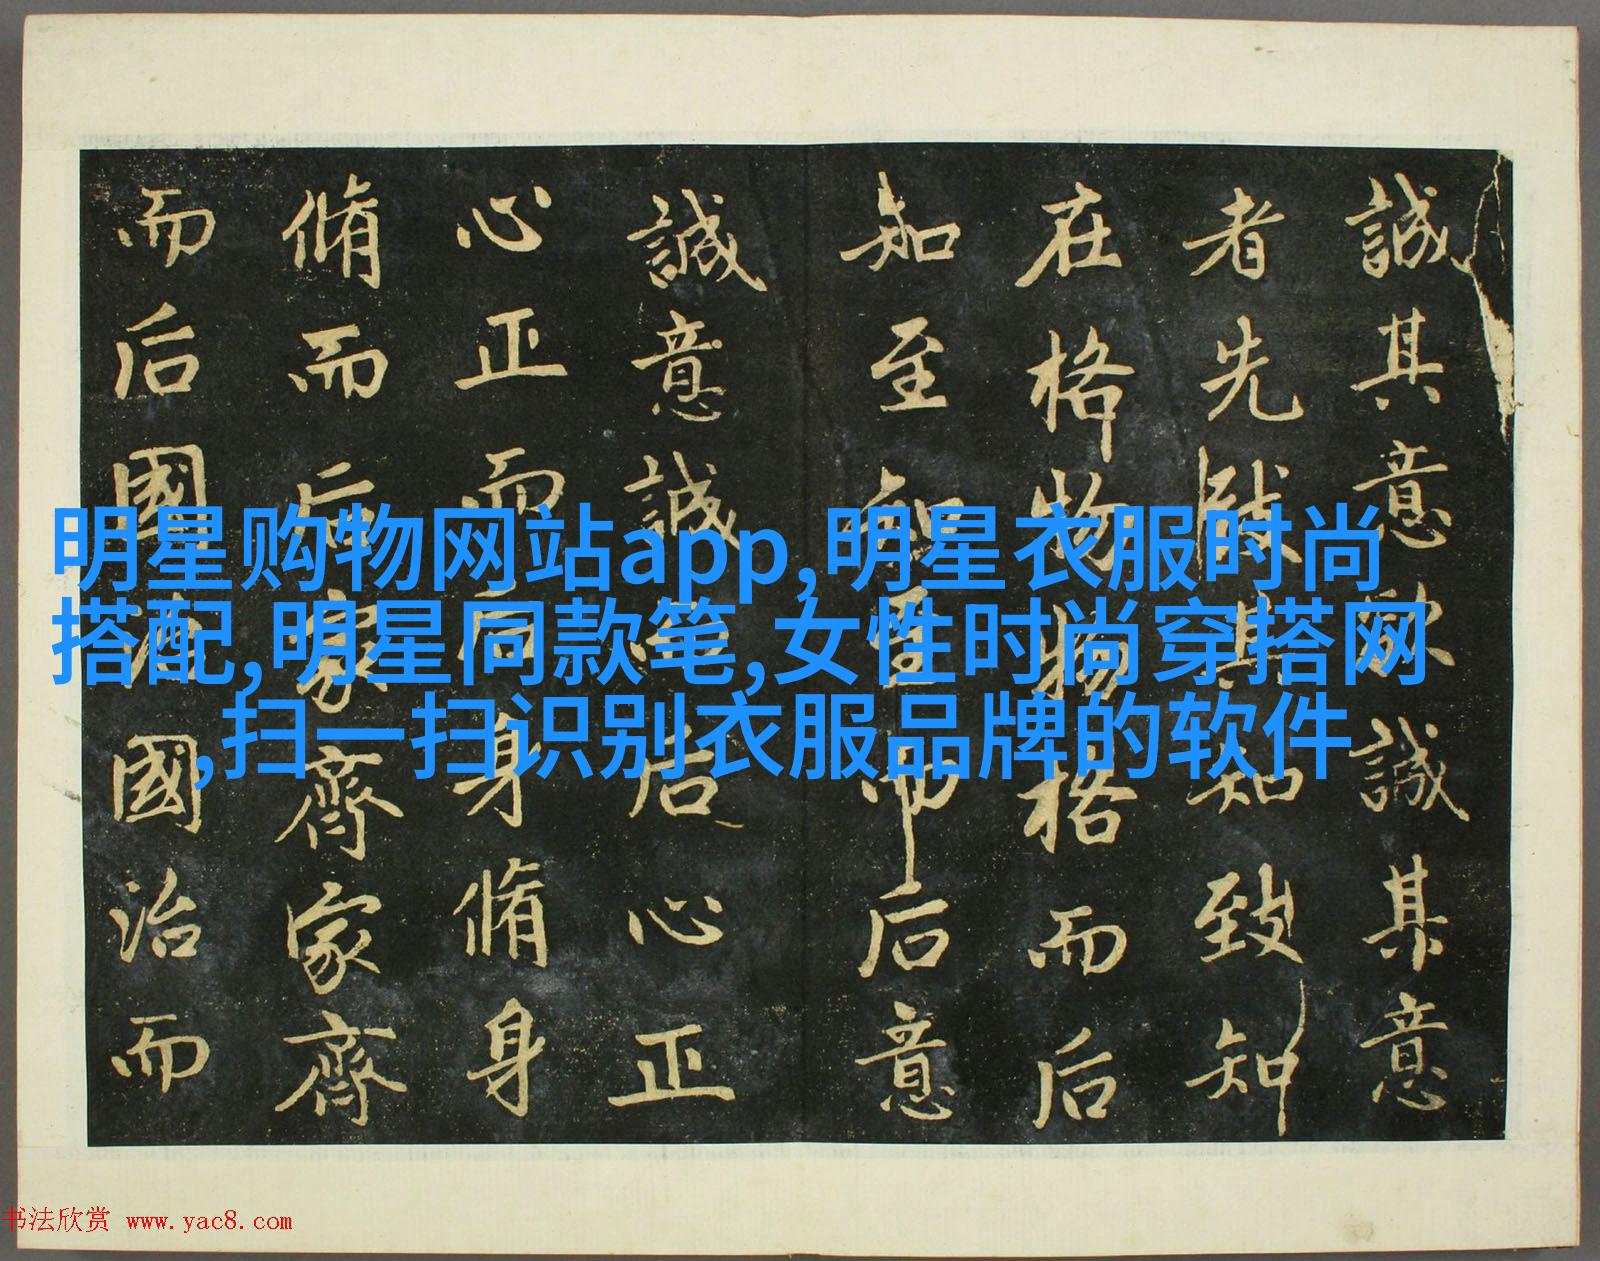 誠其意欲誠其意
者先致其知致知
在格物物格而后
知至知至而后意
誠意誠而后心正
心正而后身脩身
脩而后家齊家齊
而后國治國治而
明星购物网站app,明星衣服时尚
搭配,明星同款笔,女性时尚穿搭网
,扫一扫识别衣服品牌的软件
书法欣赏 www.yac8.com